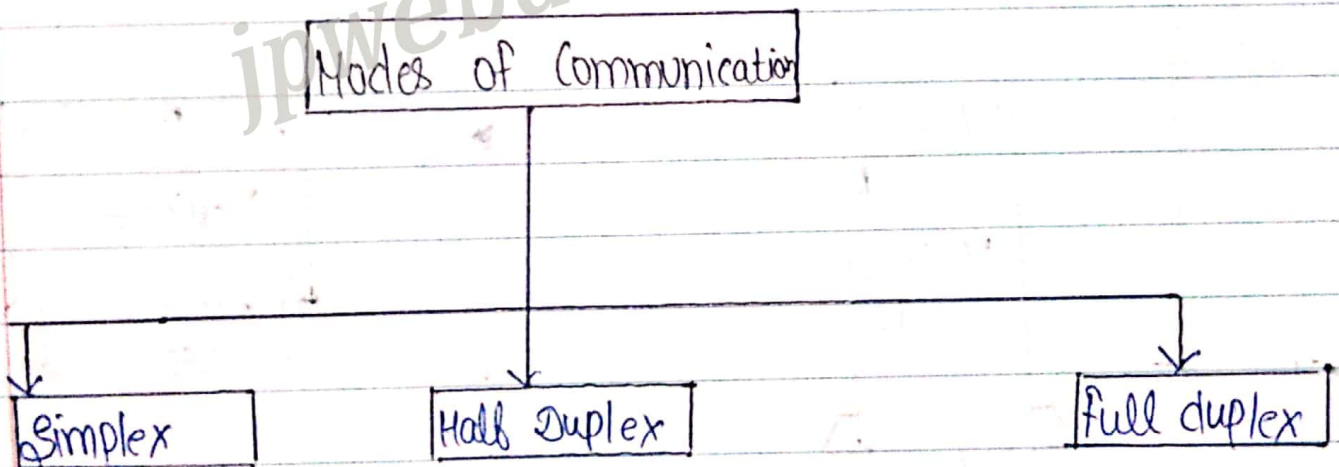 jpweb
Modes of Communication
Simplex
Half Duplex
Full duplex